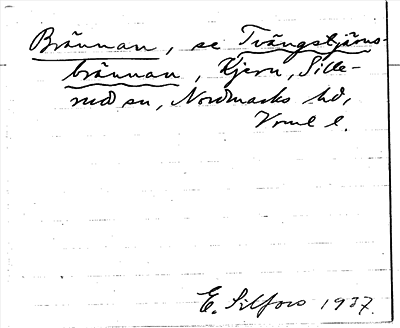 Brännan, se Tvängstjärns-
brännan, Kjern, Sille-
rud sn, Nordmarks hd,
Vrml l.
E. Silfors 1937.